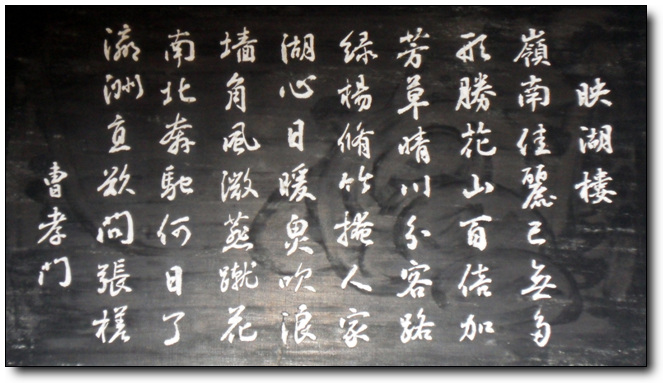 映湖樓
嶺南佳麗已無多
形勝花山百倍加
芳草晴川分客路
緑楊脩竹掩人家
湖心日暖魚吹浪
墙角風微燕蹴花
南北奔馳何日了
瀛洲直欲問張槎
曹孝門